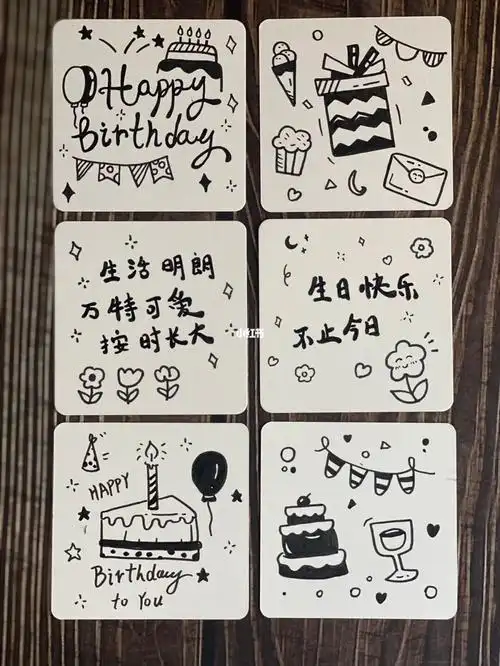 Happy
Birthday
生活明朗
万特可爱
按时长大
生日快乐
不止今日
小红书
HAPPY
Birthday
to You